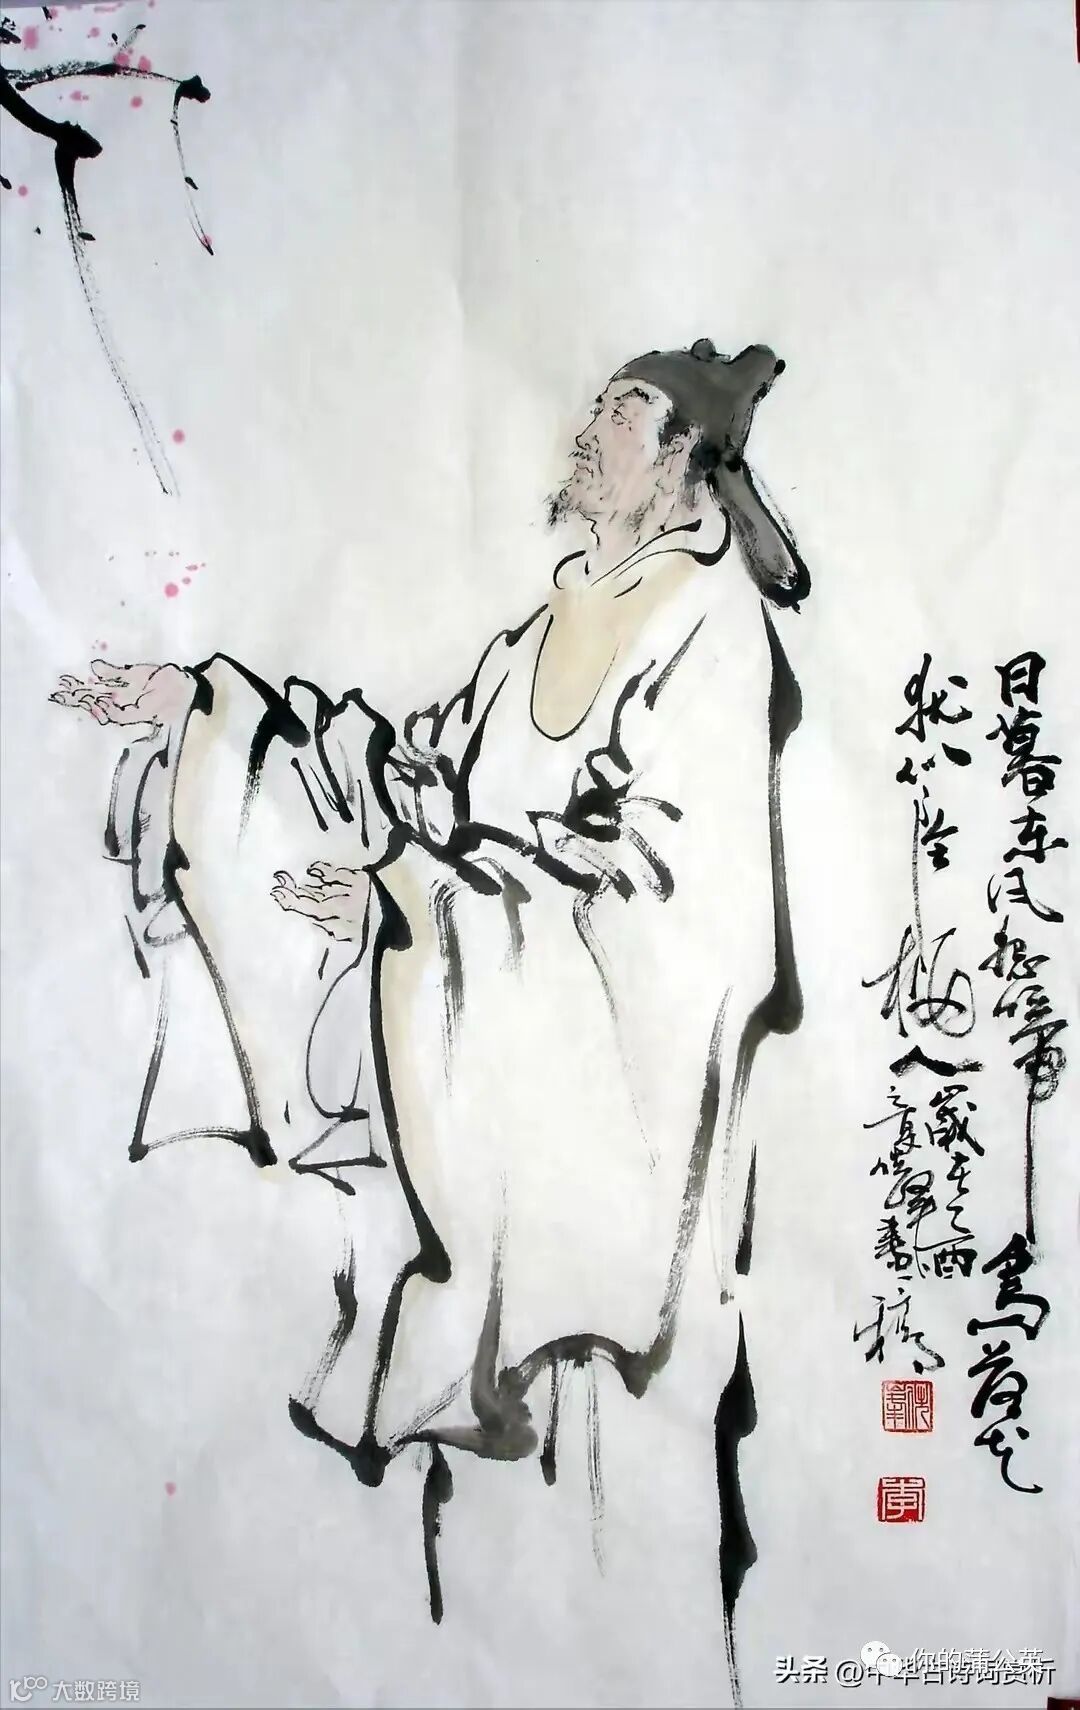 日暮东风怨啼鸟落花
犹似坠楼人
歲在乙酉
之夏
稿
你的蒲公英
头条 @中华古诗词赏析
大数跨境